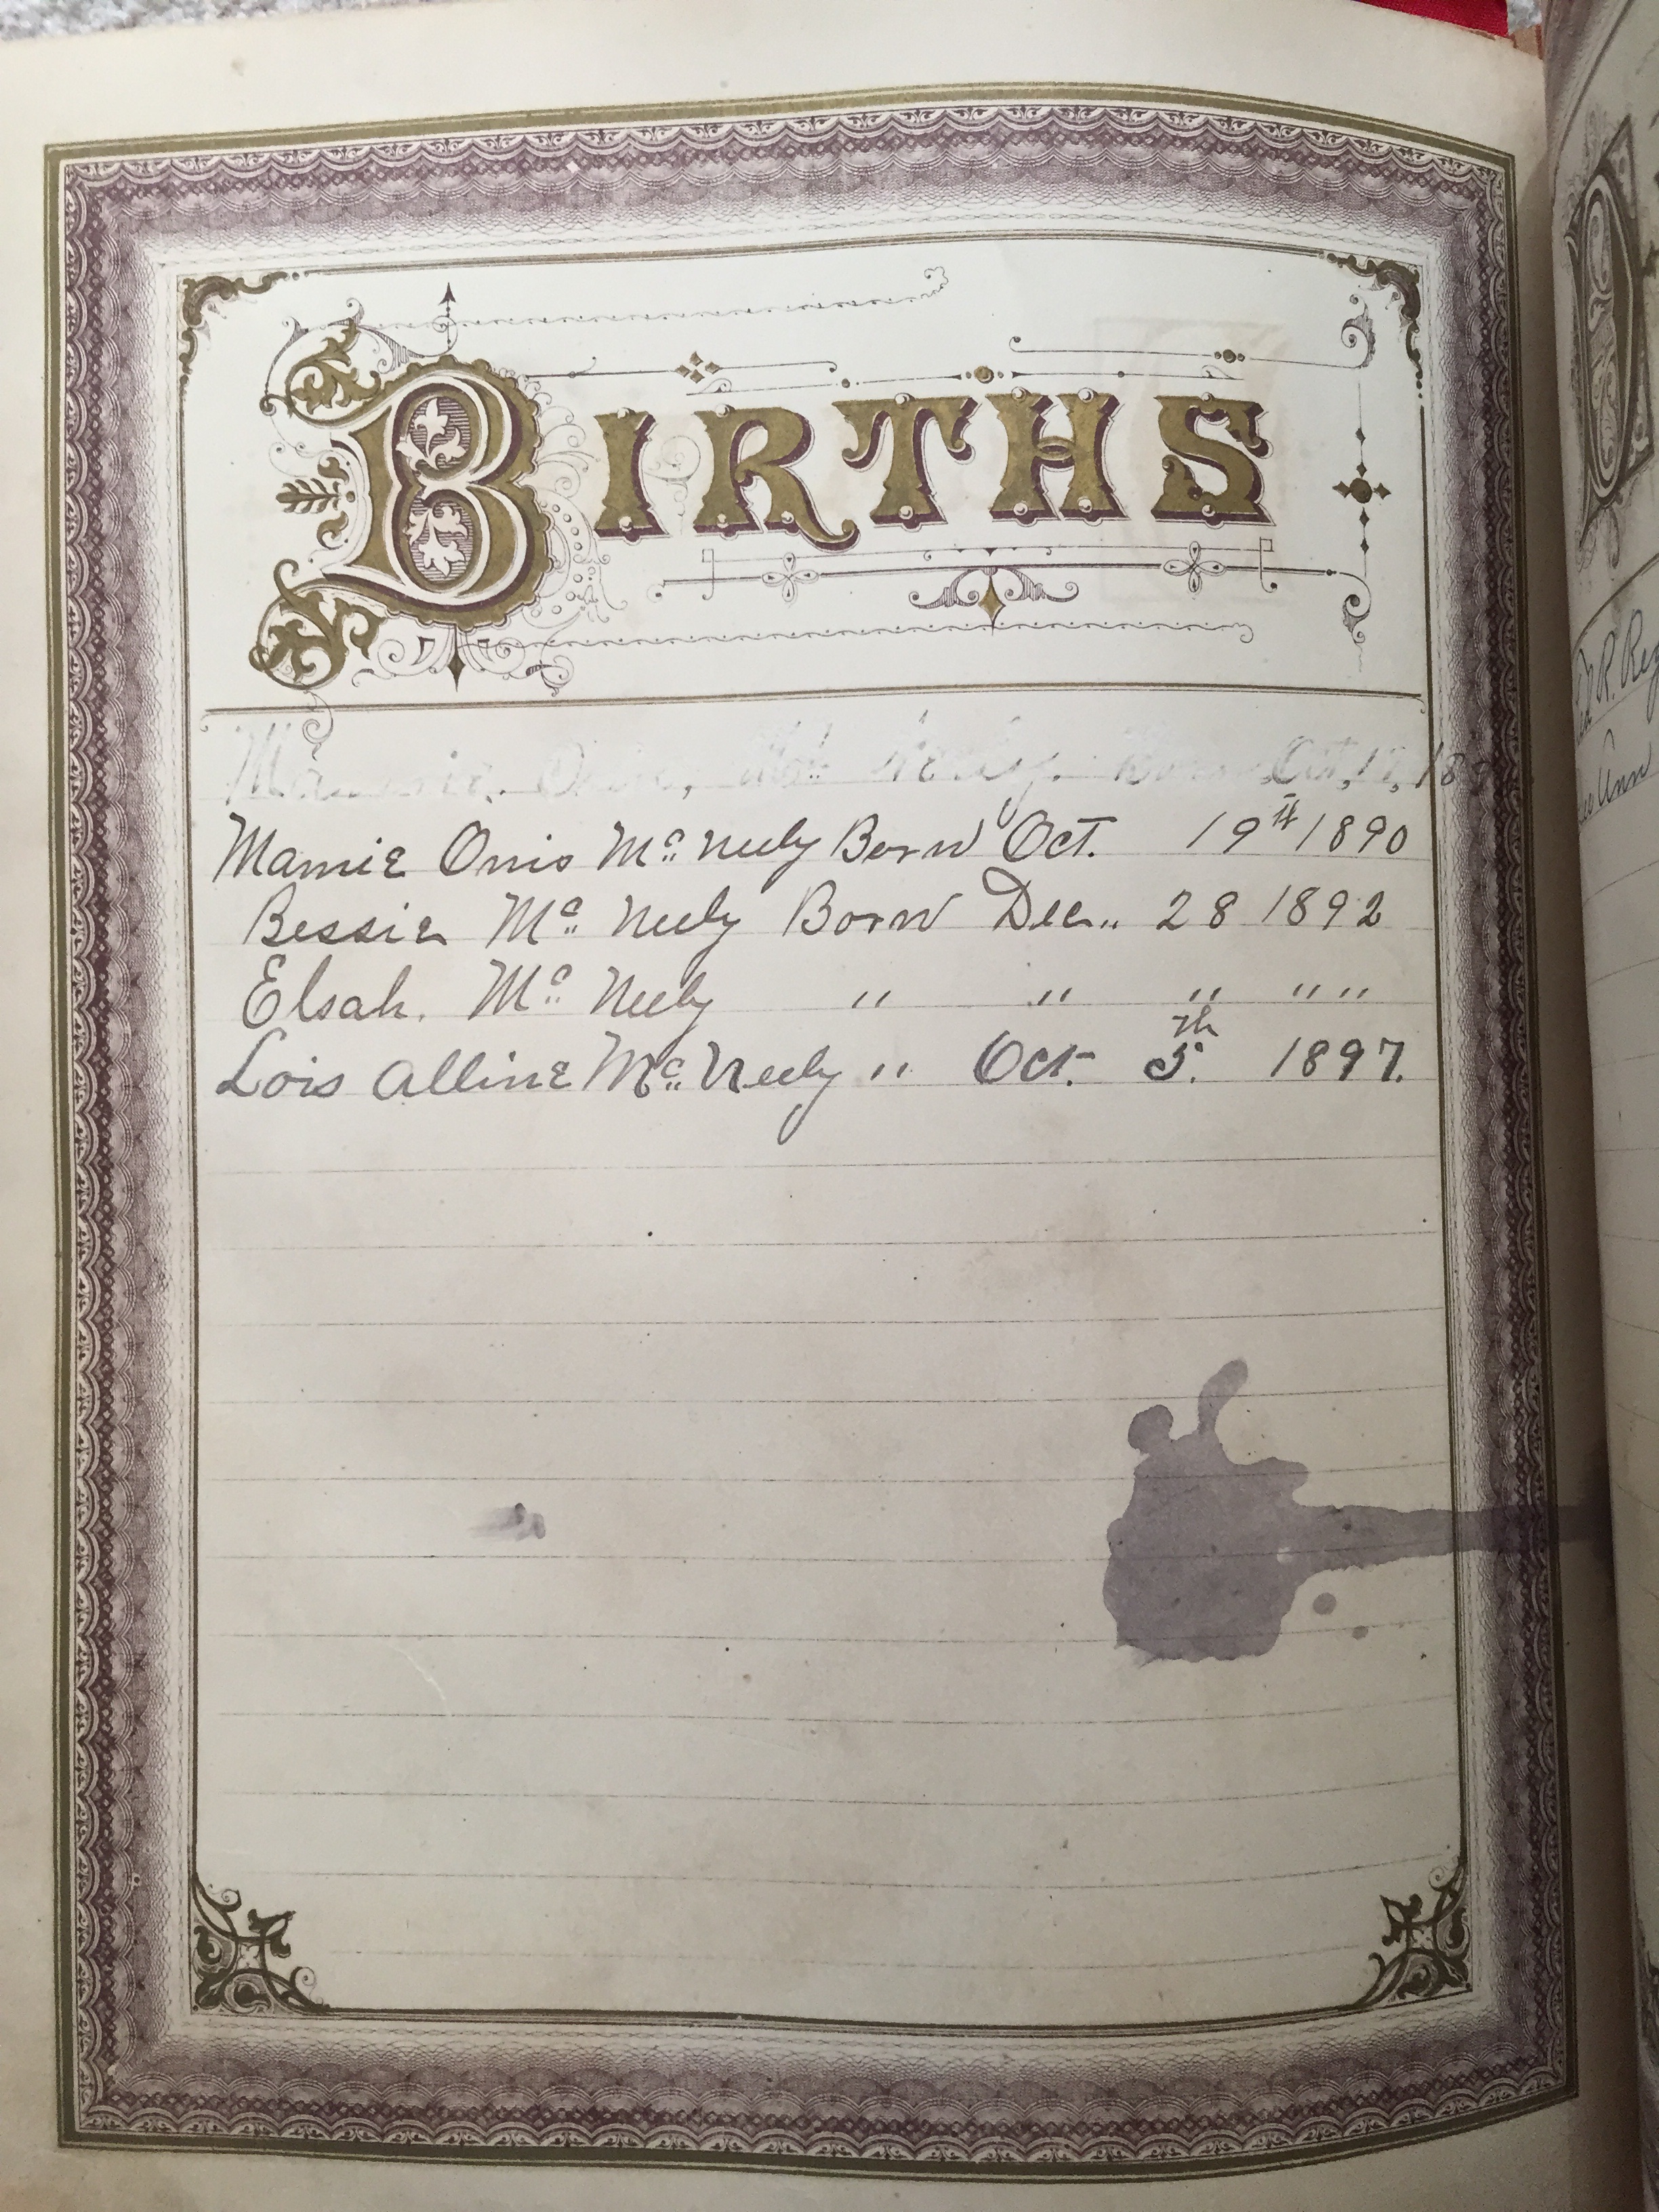 BIRTHS
Mc Neely. Born Oct, 18
Mamie Onis Mc Neely Born Oct. 19th 1890
Bessie Mc Neely Born Dec.. 28 1892
Elsah. Mc Neely " " " " "
Lois Alline Mc Neely " Oct. 5th. 1897.
R.
Ann